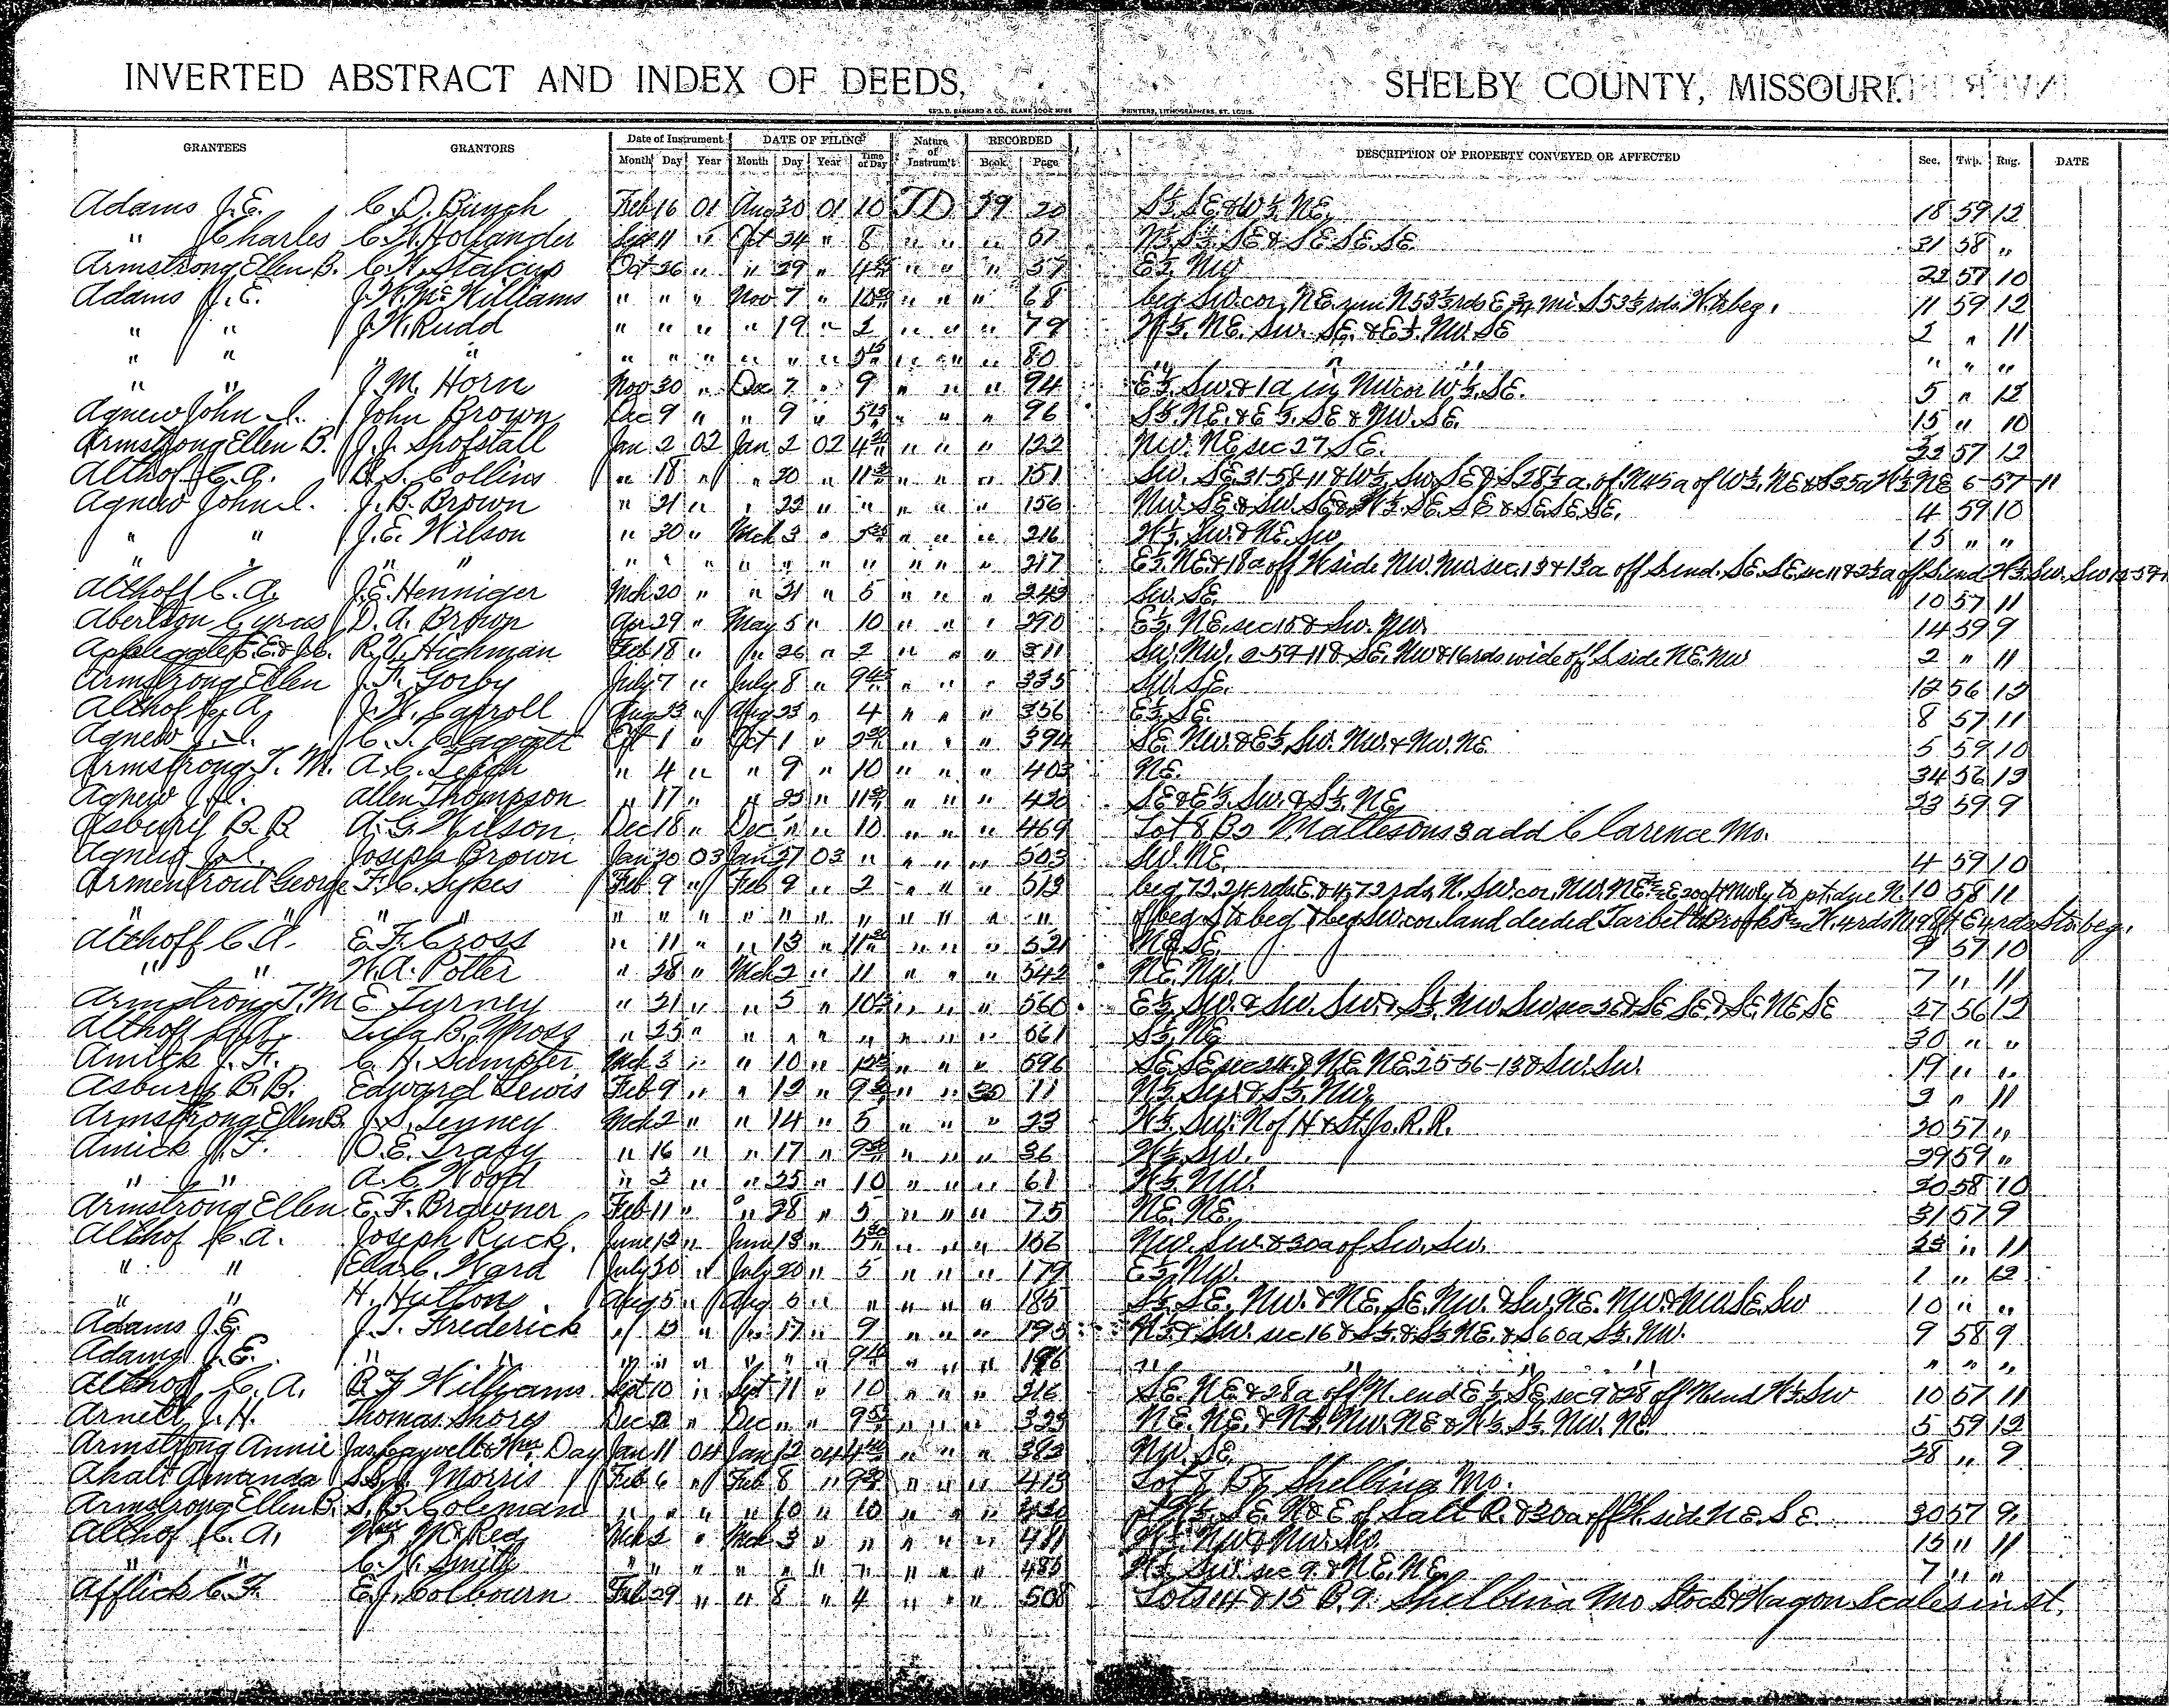 INVERTED ABSTRACT AND INDEX OF DEEDS, SHELBY COUNTY, MISSOURI.
GEO. D. BARNARD & CO., BLANK BOOK MFRS PRINTERS, LITHOGRAPHERS, ST. LOUIS.
GRANTEES GRANTORS Date of Instrument DATE OF FILING Nature of Instrum't RECORDED DESCRIPTION OF PROPERTY CONVEYED OR AFFECTED Sec. Twp. Rng. DATE
Month Day Year Month Day Year Time of Day Book Page
Adams J.E. C.D. Bunch Feb 16 01 Aug 30 01 10 TD 59 20 S½ SE & W½ NE 18 59 12
" Charles C.W. Hollander Sept 11 " Oct 24 " 8 " " " 51 N½ S½ SE & SE SE SE 31 58 "
Armstrong Ellen B. C.W. Stalcup Oct 26 " " 29 " " " " 57 E½ NW 22 57 10
Adams J.E. J.W. McWilliams " " " Nov 7 " " " " 68 beg SW cor NE run N 53⅓ rds E ¾ mi S 53⅓ rds W to beg. 11 59 12
" " J.W. Rudd " " " " 19 " 2 " " " 79 W½ NE SW SE & E½ NW SE 2 " 11
" " " " " " " " " " " " 80 " " " " " "
" " J.M. Horn Nov 30 " Dec 7 " 9 " " " 94 E½ SW & 1a in NW cor W½ SE. 5 " 12
Agnew John I. John Brown Dec 9 " " 9 " " " " 96 S½ NE & E½ SE & NW SE. 15 " 10
Armstrong Ellen B. J.J. Shofstall Jan 2 02 Jan 2 02 " " " 122 NW NE sec 27 SE. 22 57 12
Althof C.A. S. Collins " 18 " " 20 " " " " 151 SW SE 31-58-11 & W½ SW SE & S 28½ a of N 45 a of W½ NE & S 35a W½ NE 6-57-11
Agnew John I. J.B. Brown " 21 " " 22 " " " " " 156 NW SE & SW SE & W½ SE SE & SE SE SE. 4 59 10
" " J.E. Wilson " 30 " Mch 3 " " " " 216 W½ SW & NE SW 15 " "
" " " " " " " " " " " " " " 217 E½ NE & 18a off W side NW NW sec 13 & 13a off S end SE SE sec 11 & off S end W½ SW SW
Althoff C.A. J.E. Henniger Mch 20 " " 21 " 5 " " " 243 SW SE 10 57 11
Abertson Cyrus D.A. Brown Apr 29 " May 5 " 10 " " " 290 E½ NE sec 15 & SW NW 14 59 9
Applegate R.T. Hickman Feb 18 " " 26 " 2 " " " 311 SW NW 2-59-11 & SE NW & 16 rds wide off S side NE NW 2 " 11
Armstrong Ellen Gorby July 7 " July 8 " " " " 335 SW SE. 12 56 12
Althof C.A. J.W. Carroll Aug 23 " Aug 23 " 4 " " " 356 E½ SE. 8 57 11
Agnew J.I. C.T. Claggett 1 " Oct 1 " " " " 394 SE NW & E½ SW NW & NW NE 5 59 10
Armstrong T.M. A.C. " 4 " " 9 " 10 " " " 403 NE. 34 56 12
Agnew J.I. Allen Thompson " 17 " " 25 " " " " 420 SE & E½ SW & S½ NE 23 59 9
Asbury B.B. A.G. Wilson Dec 18 " Dec " " 10 " " " 469 Lot 8 B3 Mattesons 3 add Clarence Mo.
Agnew J.I. Joseph Brown Jan 20 03 Jan 27 03 " " " " 503 SW NE. 4 59 10
Armentrout George F.C. Sykes Feb 9 " Feb 9 " 2 " " " 513 beg 72.24 rds E & 4.72 rds N. SW cor NW NE E 200 ft NWly to pt due N. 10 58 11
" " " " " " " " " " " " " " " of beg S to beg & beg SW cor land deeded Tarbet to Brooks W 4 rds N 98 ft E 4 rds S to beg.
Althoff C.A. E.F. Cross " 11 " " 13 " " " " 521 NE SE. 57 10
" " W.A. Potter " 28 " Mch 2 " 11 " " " 542 NE NW. 7 " 11
Armstrong T.M. E Turney " 21 " " 5 " " " " 560 E½ SW & SW SW & S½ NW SW & SE SE & SE NE SE 27 56 12
Althoff C.A. B. Moss " 25 " " " " " " " " 561 S½ NE 30 " "
Amick J.F. C.H. Sumpter Mch 3 " " 10 " " " " 596 SE SE sec 24 & NE NE 25-56-13 & SW SW 19 " "
Asbury B.B. Edward Lewis Feb 9 " " 12 " " " 11 N½ SW & S½ NW 3 " 11
Armstrong Ellen B J.S. Tenney Mch 2 " " 14 " 5 " " " 23 W½ SW N of H & St. Jo. R.R. 20 57 "
Amick J.F. O.E. Tracy " 16 " " 17 " " " " 36 W½ SW. 29 59 "
" " A.C. Wood " 3 " " 25 " 10 " " " 61 W½ NW. 20 58 10
Armstrong Ellen E.F. Browner Feb 11 " " 28 " 5 " " " 75 NE NE. 31 57 9
Althof C.A. Joseph Ruck. June 12 " June 13 " " " " NW SW & 30a of SW SW. 23 " 11
" " C. Ward July 20 " July 20 " 5 " " " 179 E½ NW. 1 " 12
" " H. Hutson Aug 5 " Aug 6 " " " " " 185 S½ SE NW & NE SE NW & SW NE NW & NW SE SW 10 " "
Adams J.E. J.T. Frederick " 15 " " 17 " 9 " " " 195 N½ & SW sec 16 & S½ & S½ NE & S 60a S½ NW. 9 58 9
Adams J.E. " " " " " " " " " " " 196 " " " " " " "
Althof C.A. Williams Sept 10 " Sept 11 " 10 " " " 216 SE NE & 28a off N end E½ SE sec 9 & 28 off N end W½ SW 10 57 11
Arnett J.H. Thomas Shores Dec " Dec " " " " " NE NE & N½ NW NE & W½ S½ NW NE 5 59 12
Armstrong Annie Day Jan 11 04 Jan 12 04 " " " 383 NW SE. 28 " 9
Ahalt Amanda Morris Feb 6 " Feb 8 " " " " 413 Lot 7 B7 Shelbina Mo.
Armstrong Ellen B. S.B. Coleman " " " " 10 " 10 " " " SE N & E of Salt R. & 30a off side NE SE 30 57 9
Althof C.A. Wm McRea Mch 2 " Mch 3 " " " " " 481 W½ NW & NW SW. 15 " 11
" " C.W. Smith " " " " " " " " " " 485 W½ SW sec 9 & NE NE 7 " "
Afflick C.F. E.J. Colbourn Feb 29 " " 8 " 4 " " " 508 Lots 14 & 15 B.9. Shelbina Mo Stock & Wagon Scales in st.